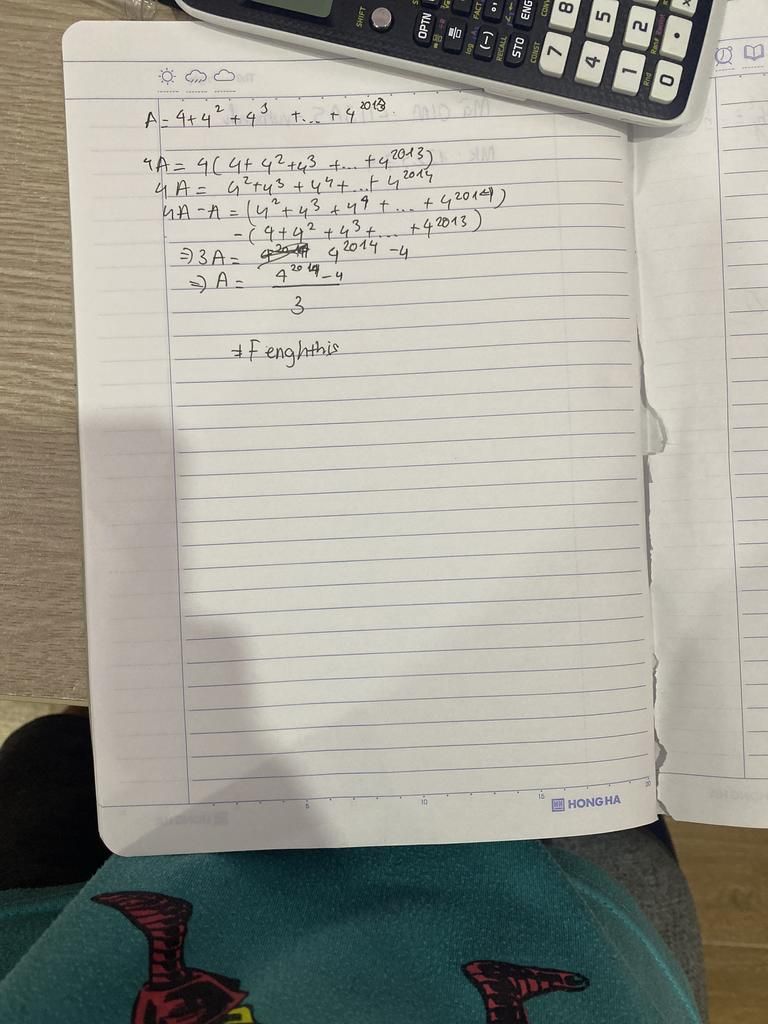 SHIFT OPTN (-) STO ENG
FACT RECALL CONST Rnd
7 8
4 5
1 2
0 •
A = 4+4² +4³ +... + 4²⁰¹³.
4A = 4(4+4²+4³ +... +4²⁰¹³)
4A = 4²+4³ +4⁴+...+ 4²⁰¹⁴
4A -A = (4²+4³ +4⁴ + ... +4²⁰¹⁴)
-(4+4² +4³+... +4²⁰¹³)
⇒3A = 4²⁰¹⁴ -4
⇒ A = 4²⁰¹⁴-4
3
5 10 15 20
HH HONG HA